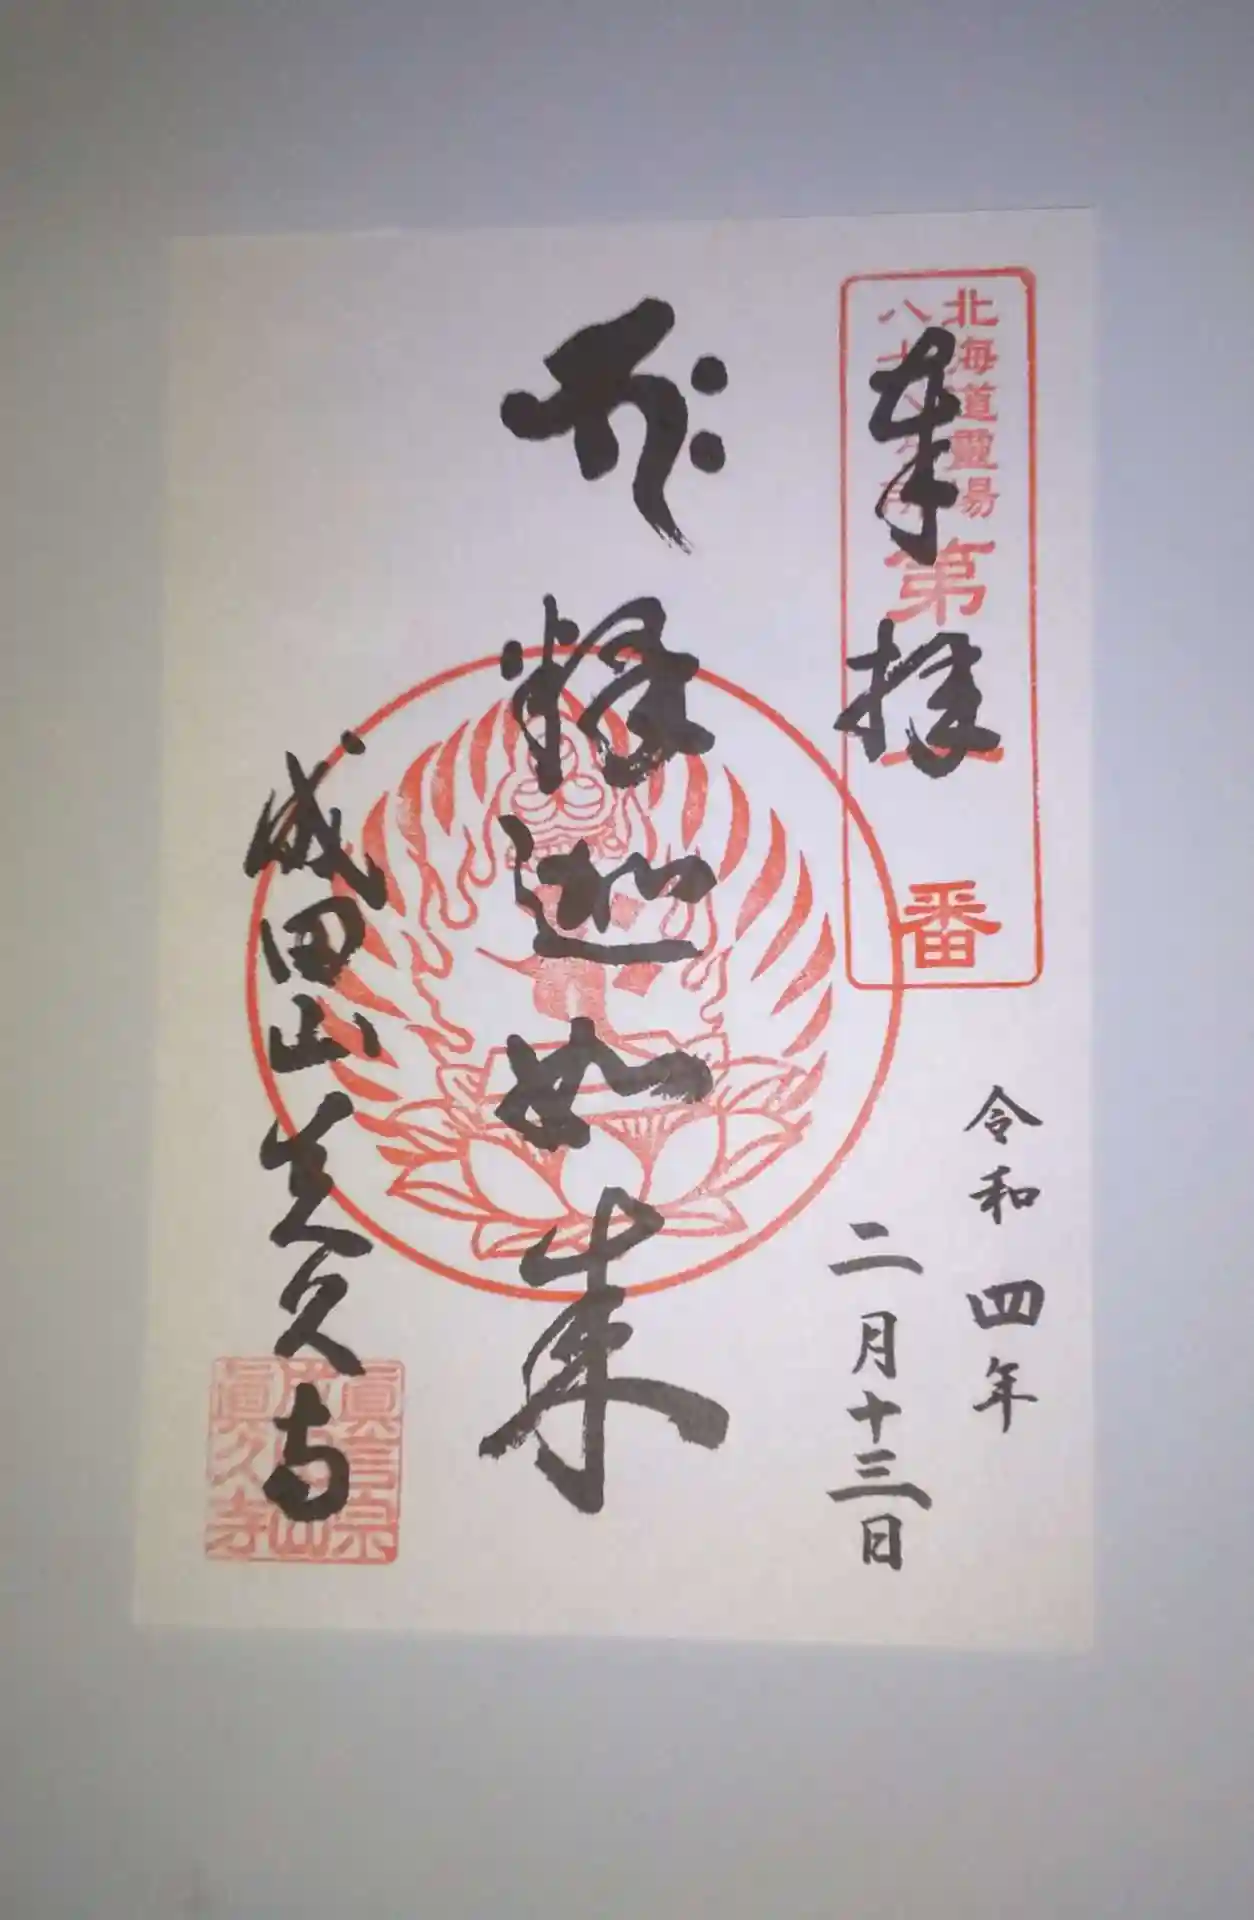 北海道霊場
八十八ヶ所
第一番
奉拝
令和四年
二月十三日
भः
釈迦如来
成田山真久寺
眞言宗
成田山
眞久寺